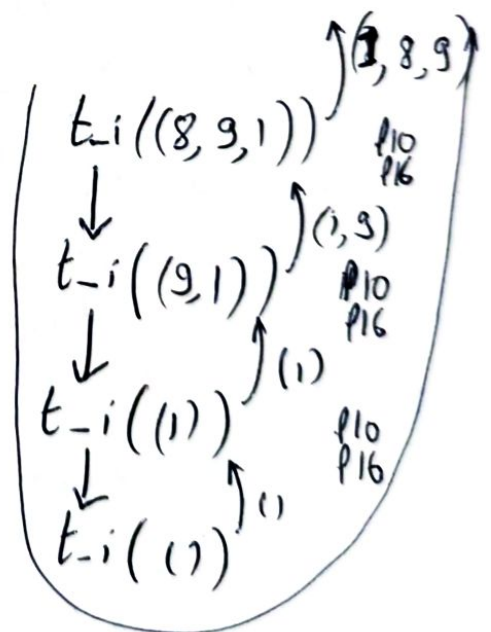 (1, 8, 9)
t_i((8,9,1))
p10
p16
(1,9)
t_i((9,1))
p10
p16
(1)
t_i((1))
p10
p16
()
t_i(())